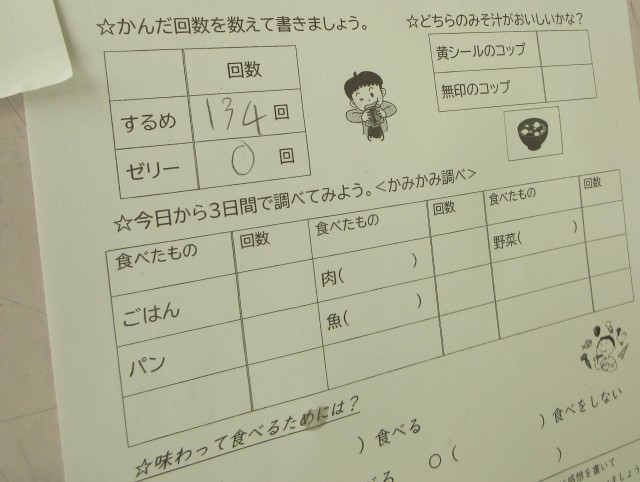 ☆かんだ回数を数えて書きましょう。
回数
するめ 134 回
ゼリー 0 回
☆どちらのみそ汁がおいしいかな?
黄シールのコップ
無印のコップ
☆今日から3日間で調べてみよう。<かみかみ調べ>
食べたもの 回数 食べたもの 回数 食べたもの 回数
ごはん 肉( ) 野菜( )
パン 魚( )
☆味わって食べるためには?
)食べる )食べをしない
べる ○( )
感想を書いて
ましょう